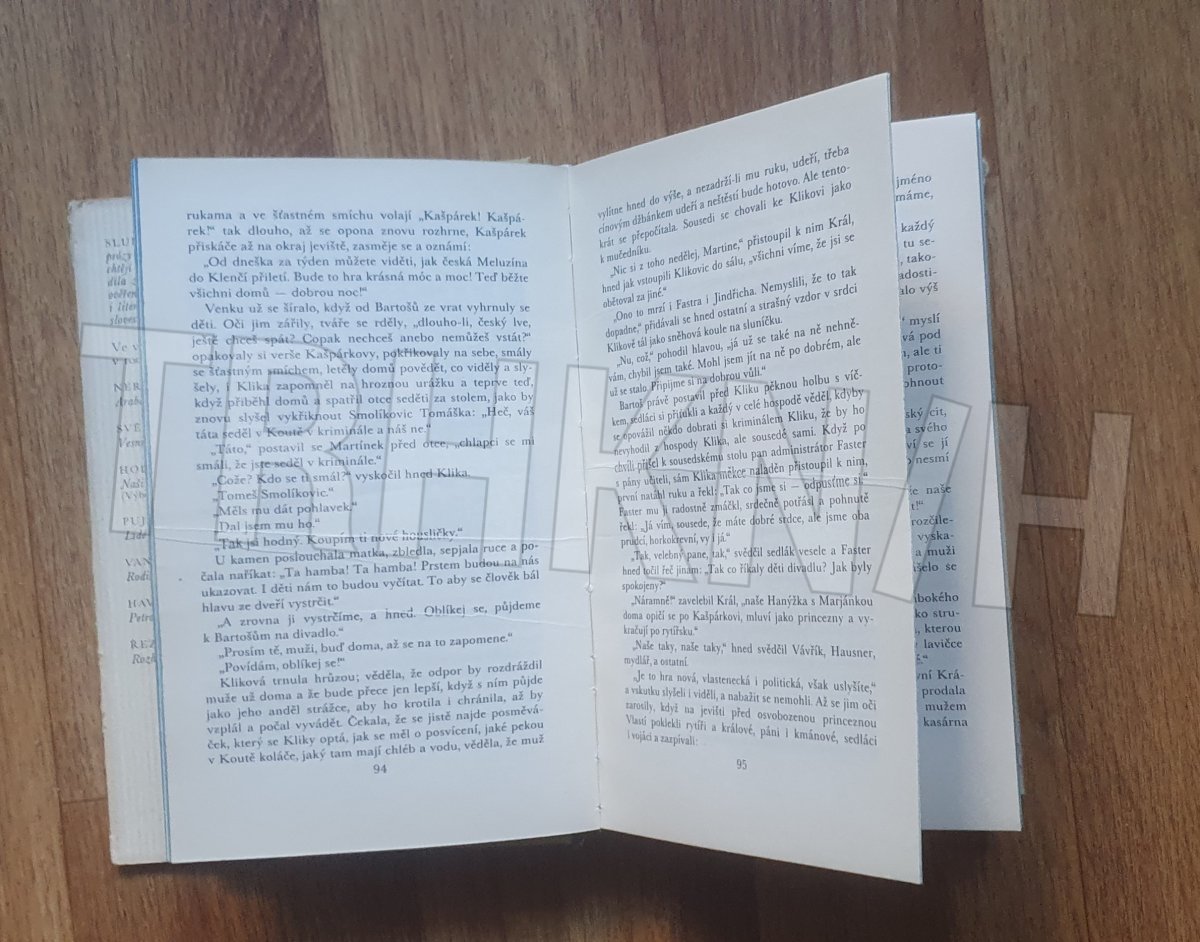 SLU
prózy
chtějí
díla
Ve v
v
NER
Arab
SVĚ
Vesn
HOL
Naši
(Výb
PUJ
Lide
VAN
Rodi
HAV
Petra
ŘEZ
Rozh
rukama a ve šťastném smíchu volají „Kašpárek! Kašpá-
rek!“ tak dlouho, až se opona znovu rozhrne, Kašpárek
přiskáče až na okraj jeviště, zasměje se a oznámí:
„Od dneška za týden můžete viděti, jak česká Meluzína
do Klenčí přiletí. Bude to hra krásná móc a moc! Teď běžte
všichni domů — dobrou noc!“
Venku už se šíralo, když od Bartošů ze vrat vyhrnuly se
děti. Oči jim zářily, tváře se rděly, „dlouho-li, český lve,
ještě chceš spát? Copak nechceš anebo nemůžeš vstát?“
opakovaly si verše Kašpárkovy, pokřikovaly na sebe, smály
se šťastným smíchem, letěly domů povědět, co viděly a sly-
šely, i Klika zapomněl na hroznou urážku a teprve teď,
když přiběhl domů a spatřil otce seděti za stolem, jako by
znovu slyšel vykřiknout Smolíkovic Tomáška: „Heč, váš
táta seděl v Koutě v kriminále a náš ne.“
„Táto,“ postavil se Martínek před otce, „chlapci se mi
smáli, že jste seděl v kriminále.“
„Cože? Kdo se ti smál?“ vyskočil hned Klika.
„Tomeš Smolíkovic.“
„Měls mu dát pohlavek.“
„Dal jsem mu ho.“
„Tak jsi hodný. Koupím ti nové housličky.“
U kamen poslouchala matka, zbledla, sepjala ruce a po-
čala naříkat: „Ta hamba! Ta hamba! Prstem budou na nás
ukazovat. I děti nám to budou vyčítat. To aby se člověk bál
hlavu ze dveří vystrčit.“
„A zrovna ji vystrčíme, a hned. Oblíkej se, půjdeme
k Bartošům na divadlo.“
„Prosím tě, muži, buď doma, až se na to zapomene.“
„Povídám, oblíkej se!“
Kliková trnula hrůzou; věděla, že odpor by rozdráždil
muže už doma a že bude přece jen lepší, když s ním půjde
jako jeho anděl strážce, aby ho krotila i chránila, až by
vzplál a počal vyvádět. Čekala, že se jistě najde posměvá-
ček, který se Kliky optá, jak se měl o posvícení, jaké pekou
v Koutě koláče, jaký tam mají chléb a vodu, věděla, že muž
94
vylítne hned do výše, a nezadrží-li mu ruku, udeří, třeba
cínovým džbánkem udeří a neštěstí bude hotovo. Ale tento-
krát se přepočítala. Sousedi se chovali ke Klikovi jako
k mučedníku.
„Nic si z toho nedělej, Martine,“ přistoupil k nim Král,
hned jak vstoupili Klikovic do sálu, „všichni víme, že jsi se
obětoval za jiné.“
„Ono to mrzí i Fastra i Jindřicha. Nemyslili, že to tak
dopadne,“ přidávali se hned ostatní a strašný vzdor v srdci
Klikově tál jako sněhová koule na sluníčku.
„Nu, což,“ pohodil hlavou, „já už se také na ně nehně-
vám, chybil jsem také. Mohl jsem jít na ně po dobrém, ale
už se stalo. Připijme si na dobrou vůli.“
Bartoš právě postavil před Kliku pěknou holbu s víč-
kem, sedláci si přiťukli a každý v celé hospodě věděl, kdyby
se opovážil někdo dobrati si kriminálem Kliku, že by ho
nevyhodil z hospody Klika, ale sousedé sami. Když po
chvíli přišel k sousedskému stolu pan administrátor Faster
s pány učiteli, sám Klika měkce naladěn přistoupil k nim,
první natáhl ruku a řekl: „Tak co jsme si — odpusťme si.“
Faster mu ji radostně zmáčkl, srdečně potřásl a pohnutě
řekl: „Já vím, sousede, že máte dobré srdce, ale jsme oba
prudcí, horkokrevní, vy i já.“
„Tak, velebný pane, tak,“ svědčil sedlák vesele a Faster
hned točil řeč jinam: „Tak co říkaly děti divadlu? Jak byly
spokojeny?“
„Náramně!“ zavelebil Král, „naše Hanýžka s Marjánkou
doma opičí se po Kašpárkovi, mluví jako princezny a vy-
kračují po rytířsku.“
„Naše taky, naše taky,“ hned svědčil Vávřík, Hausner,
mydlář, a ostatní.
„Je to hra nová, vlastenecká i politická, však uslyšíte,“
a vskutku slyšeli i viděli, a nabažit se nemohli. Až se jim oči
zarosily, když na jevišti před osvobozenou princeznou
Vlastí poklekli rytíři a králové, páni i kmánové, sedláci
i vojáci a zazpívali:
95
jméno
máme,
každý
tu se-
, tako-
adosti-
alo výš
myslí
vá pod
, ale ti
proto-
ohnout
ský cit,
a svého
ví se jí
nesmí
že naše
t!“
rozčile-
vyska-
a muži
šelo se
bokého
ko stru-
, kterou
lavičce
vní Krá-
prodala
mužem
kasárna
TRHKNIH